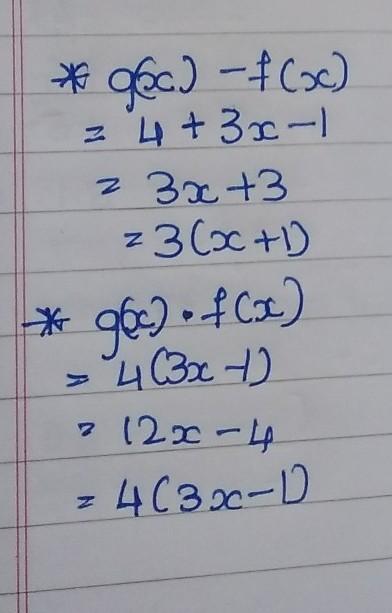 * g(x) - f(x)
= 4 + 3x - 1
= 3x + 3
= 3(x + 1)
* g(x) • f(x)
= 4(3x - 1)
= 12x - 4
= 4(3x - 1)